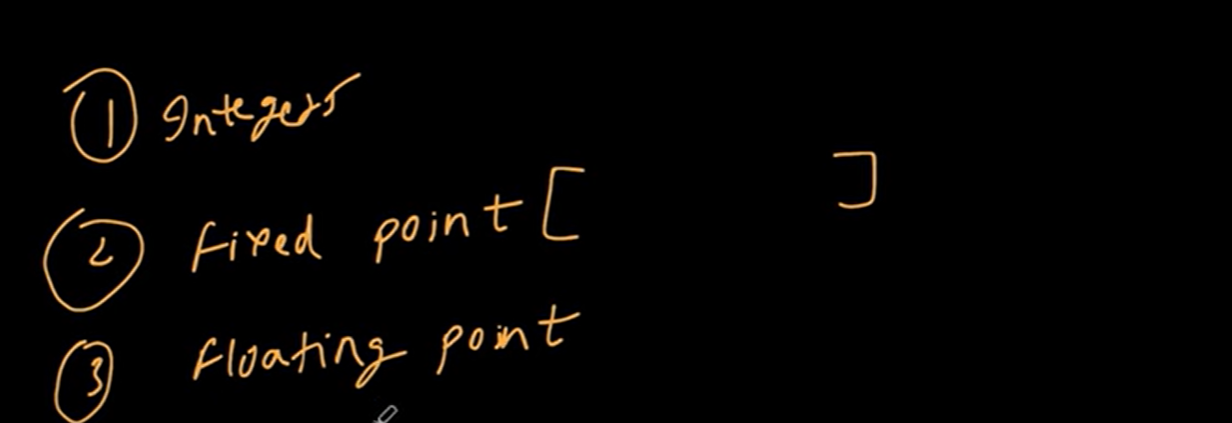 ① Integers
② fixed point [ ]
③ floating point